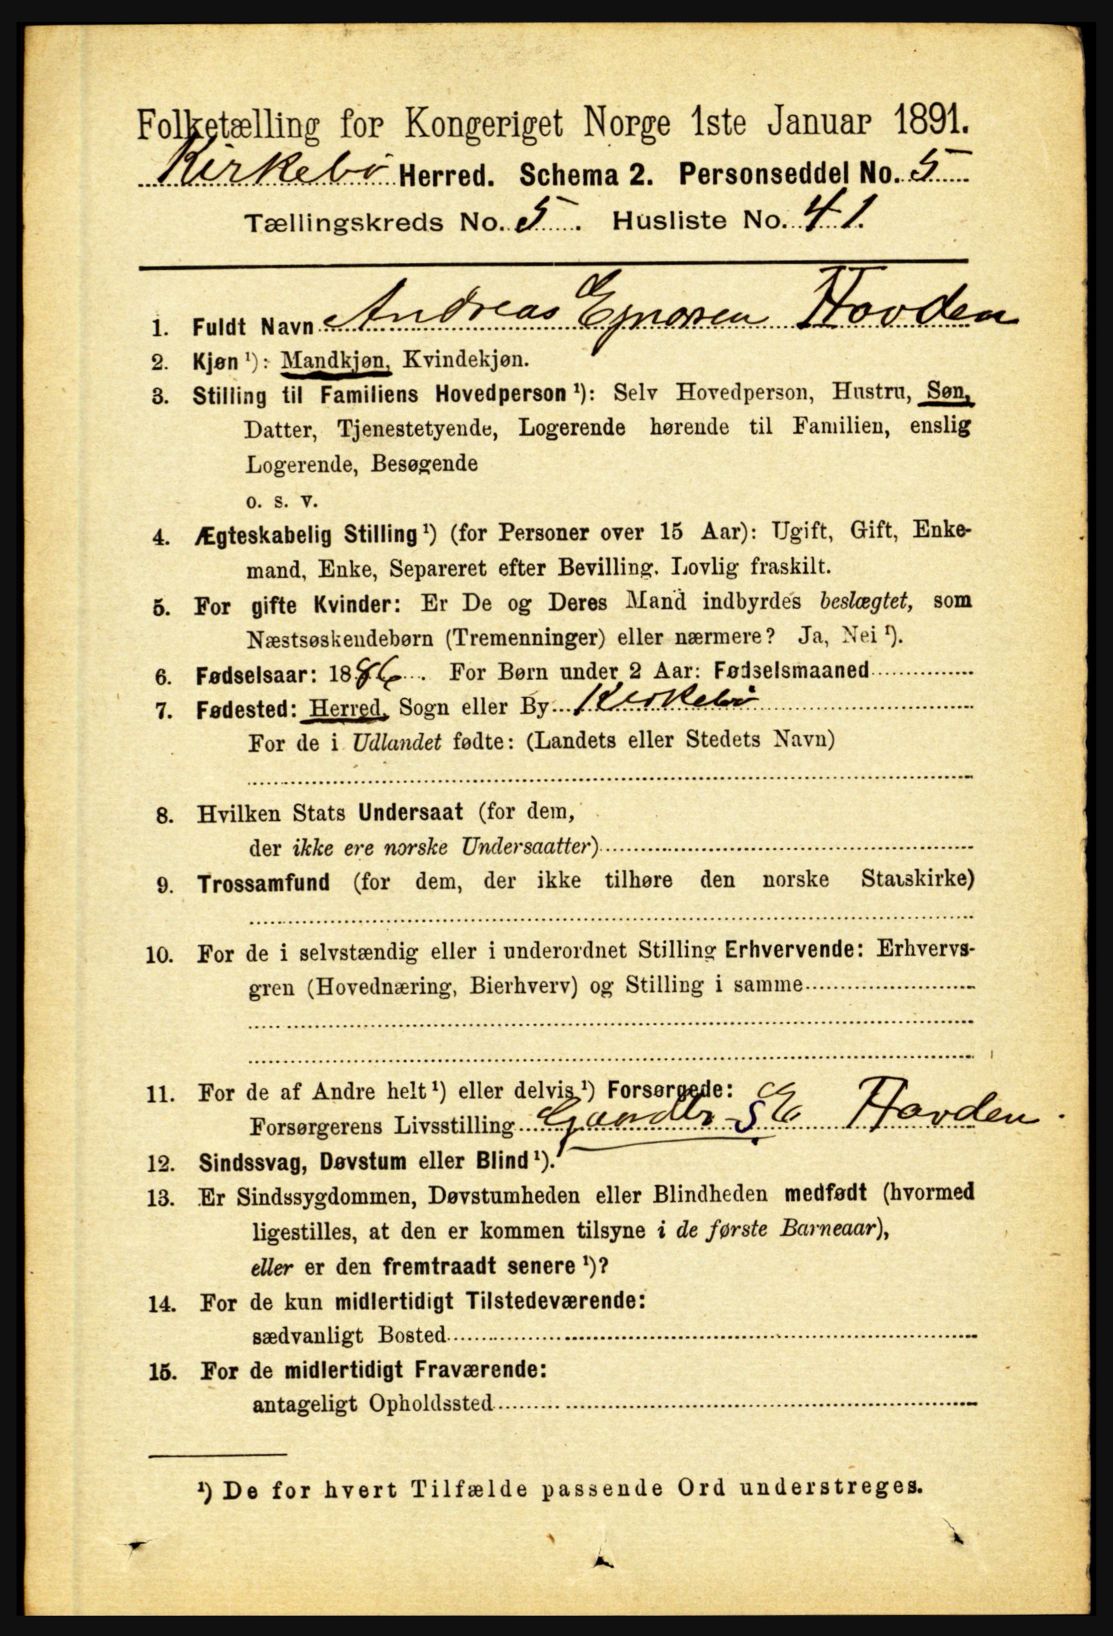 Folketælling for Kongeriget Norge 1ste Januar 1891.
Kirkebø Herred. Schema 2. Personseddel No. 5
Tællingskreds No. 5. Husliste No. 41.
1. Fuldt Navn Andreas Hovden
2. Kjøn ¹): Mandkjøn, Kvindekjøn.
3. Stilling til Familiens Hovedperson ¹): Selv Hovedperson, Hustru, Søn,
Datter, Tjenestetyende, Logerende hørende til Familien, enslig
Logerende, Besøgende
o. s. v.
4. Ægteskabelig Stilling ¹) (for Personer over 15 Aar): Ugift, Gift, Enke-
mand, Enke, Separeret efter Bevilling. Lovlig fraskilt.
5. For gifte Kvinder: Er De og Deres Mand indbyrdes beslægtet, som
Næstsøskendebørn (Tremenninger) eller nærmere? Ja, Nei ¹).
6. Fødselsaar: 1886. For Børn under 2 Aar: Fødselsmaaned
7. Fødested: Herred, Sogn eller By Kirkebø
For de i Udlandet fødte: (Landets eller Stedets Navn)
8. Hvilken Stats Undersaat (for dem,
der ikke ere norske Undersaatter)
9. Trossamfund (for dem, der ikke tilhøre den norske Statskirke)
10. For de i selvstændig eller i underordnet Stilling Erhvervende: Erhvervs-
gren (Hovednæring, Bierhverv) og Stilling i samme
11. For de af Andre helt ¹) eller delvis ¹) Forsørgede:
Forsørgerens Livsstilling Gaardbr S E Hovden.
12. Sindssvag, Døvstum eller Blind ¹).
13. Er Sindssygdommen, Døvstumheden eller Blindheden medfødt (hvormed
ligestilles, at den er kommen tilsyne i de første Barneaar),
eller er den fremtraadt senere ¹)?
14. For de kun midlertidigt Tilstedeværende:
sædvanligt Bosted
15. For de midlertidigt Fraværende:
antageligt Opholdssted
¹) De for hvert Tilfælde passende Ord understreges.